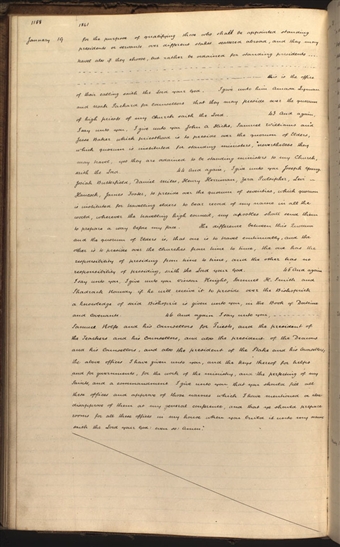 1188 1841
January 19. for the purpose of qualifying those who shall be appointed standing
presidents or servants over different stakes scattered abroad, and they may
travel also if they choose, but rather be ordained for standing presidents
this is the office
of their calling saith the Lord your God. I give unto him Amasa Lyman
and Noah Packard for Counsellors that they may preside over the quorum
of high priests of my Church saith the Lord. 43 And again,
I say unto you, I give unto you John A. Hicks, Samuel Williams and
Jesse Baker which priesthood is to preside over the quorum of Elders,
which quorum is instituted for standing ministers, nevertheless they
may travel, yet they are ordained to be standing ministers to my Church,
saith the Lord. 44 And again, I give unto you Joseph Young,
Josiah Butterfield, Daniel Miles, Henry Herriman, Zera Pulsipher, Levi
Hancock, James Foster, to preside over the quorum of seventies, which quorum
is instituted for travelling elders to bear record of my name in all the
world, wherever the travelling high council, my apostles shall send them
to prepare a way before my face. The difference between this Quorum
and the quorum of Elders is, that one is to travel continually, and the
other is to preside over the churches from time to time, the one has the
responsibility of presiding from time to time, and the other has no
responsibility of presiding, saith the Lord your God. 45 And again
I say unto you, I give unto you Vinson Knight, Samuel H. Smith and
Shadrach Roundy, if he will receive it to preside over the Bishopric,
a knowledge of said Bishopric is given unto you, in the Book of Doctrine
and Covenants. 46 And again I say unto you,
Samuel Rolfe and his Counsellors for Priests, and the president of
the Teachers and his Counsellors, and also the president of the Deacons
and his Counsellors, and also the president of the Stake and his Counsellors,
the above offices I have given unto you, and the keys thereof for helps
and for governments, for the work of the ministry, and the perfecting of my
Saints, and a commandment I give unto you that you should fill all
these offices and approve of those names which I have mentioned or else
disapprove of them at my general conference, and that ye should prepare
rooms for all these offices in my house when you build it unto my name
saith the Lord your God. even so. Amen."